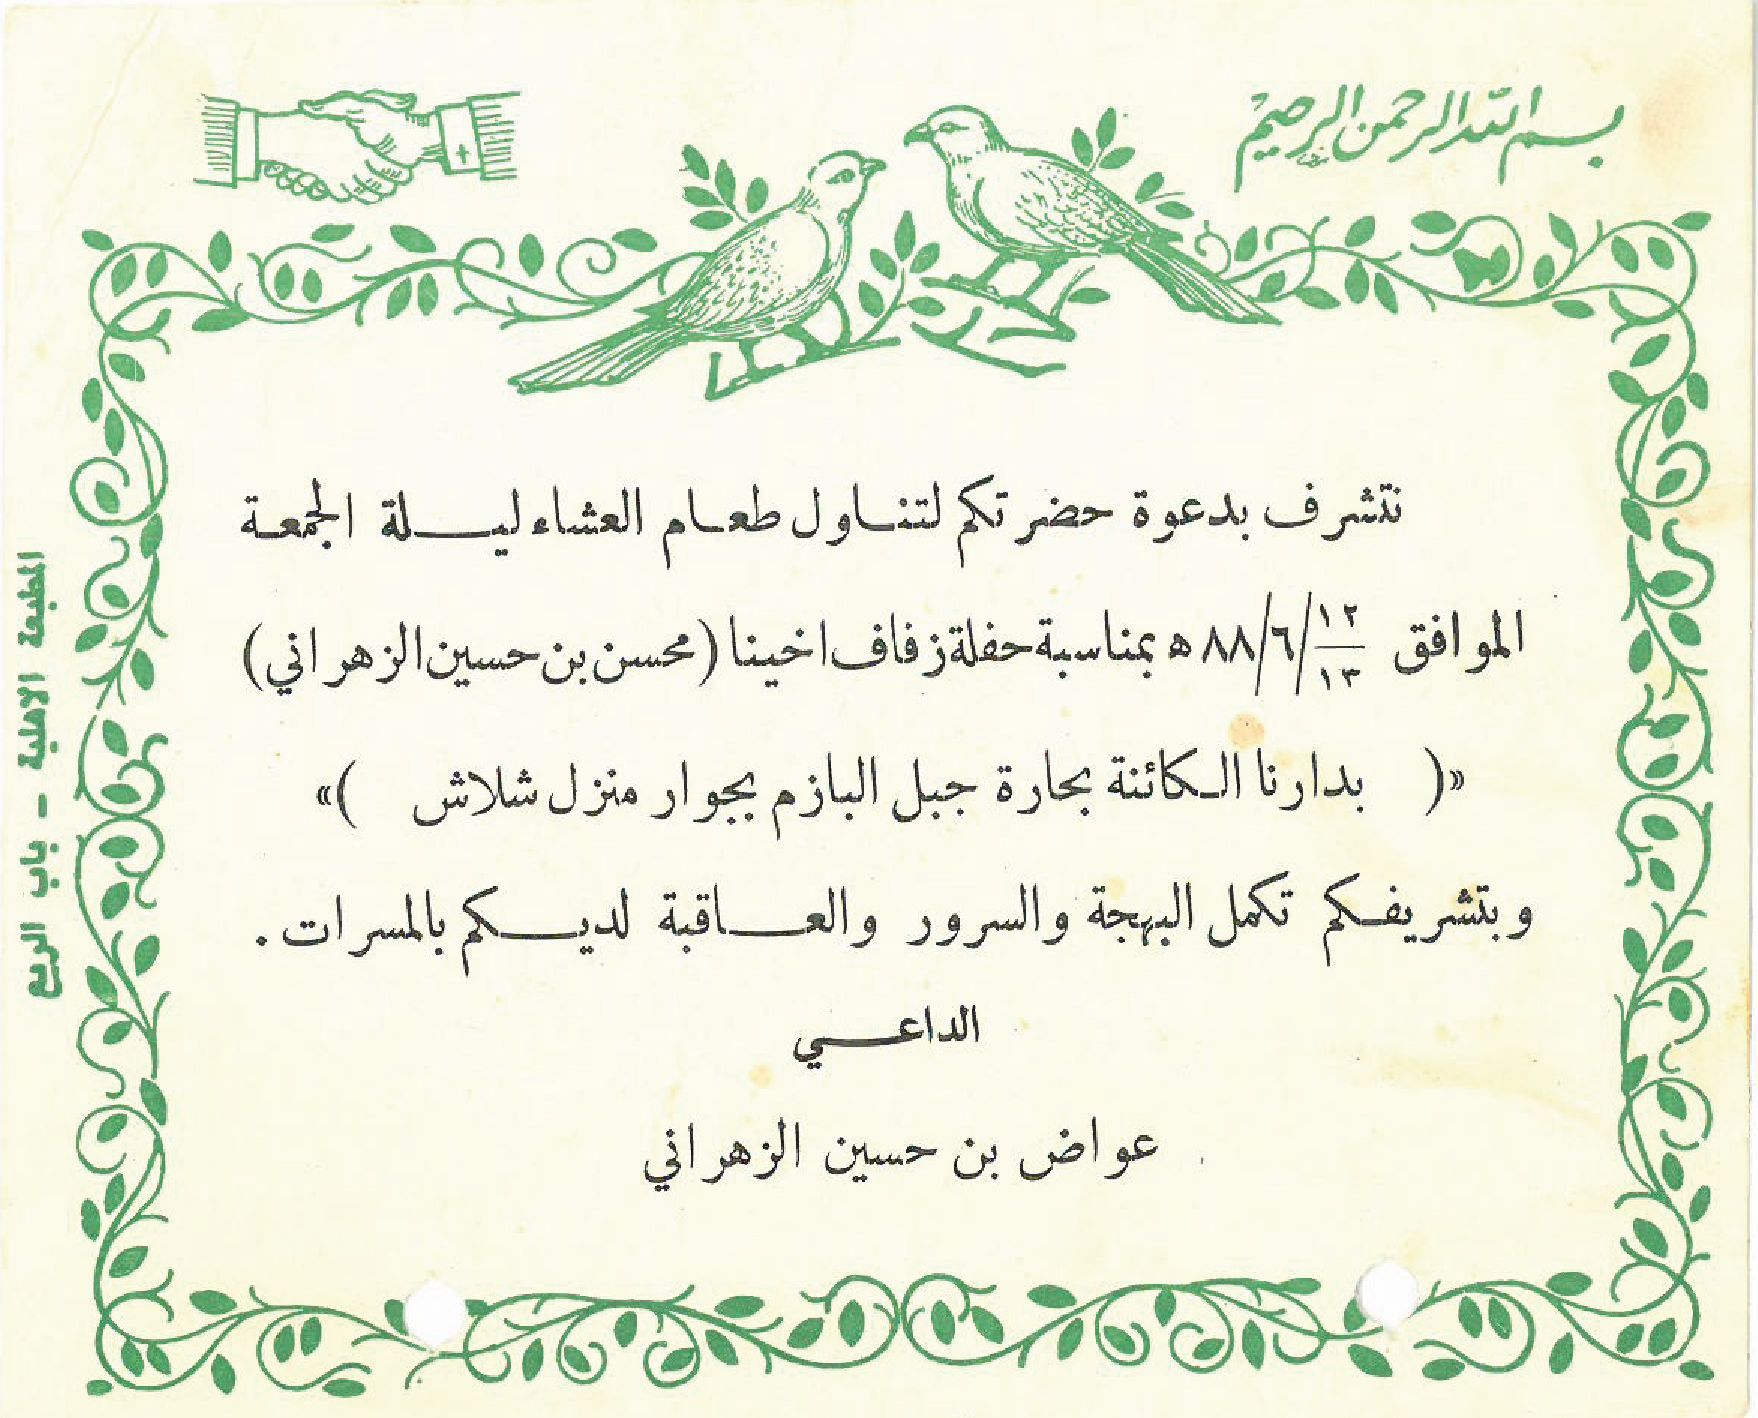 بسم الله الرحمن الرحيم
نتشرف بدعوة حضرتكم لتناول طعام العشاء ليلة الجمعة
الموافق ١٢/١٣/٦/٨٨ ه بمناسبة حفلة زفاف اخينا (محسن بن حسين الزهراني)
«( بدارنا الكائنة بحارة جبل البازم بجوار منزل شلاش )»
وبتشريفكم تكمل البهجة والسرور والعاقبة لديكم بالمسرات .
الداعي
عواض بن حسين الزهراني
المطبعة الاهلية - باب الريع